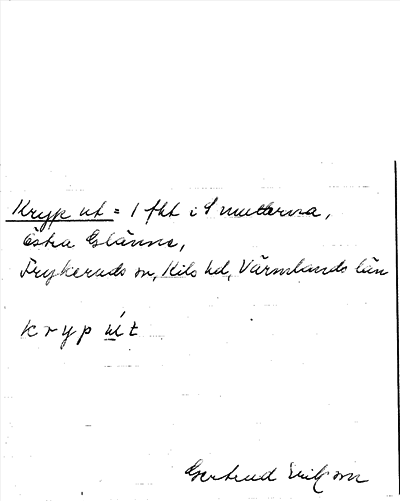 Kryp ut = 1 fht i Smulterna,
Östra Glänne,
Frykeruds sn, Kils hd, Värmlands län
kryp út
Gertrud Ericson